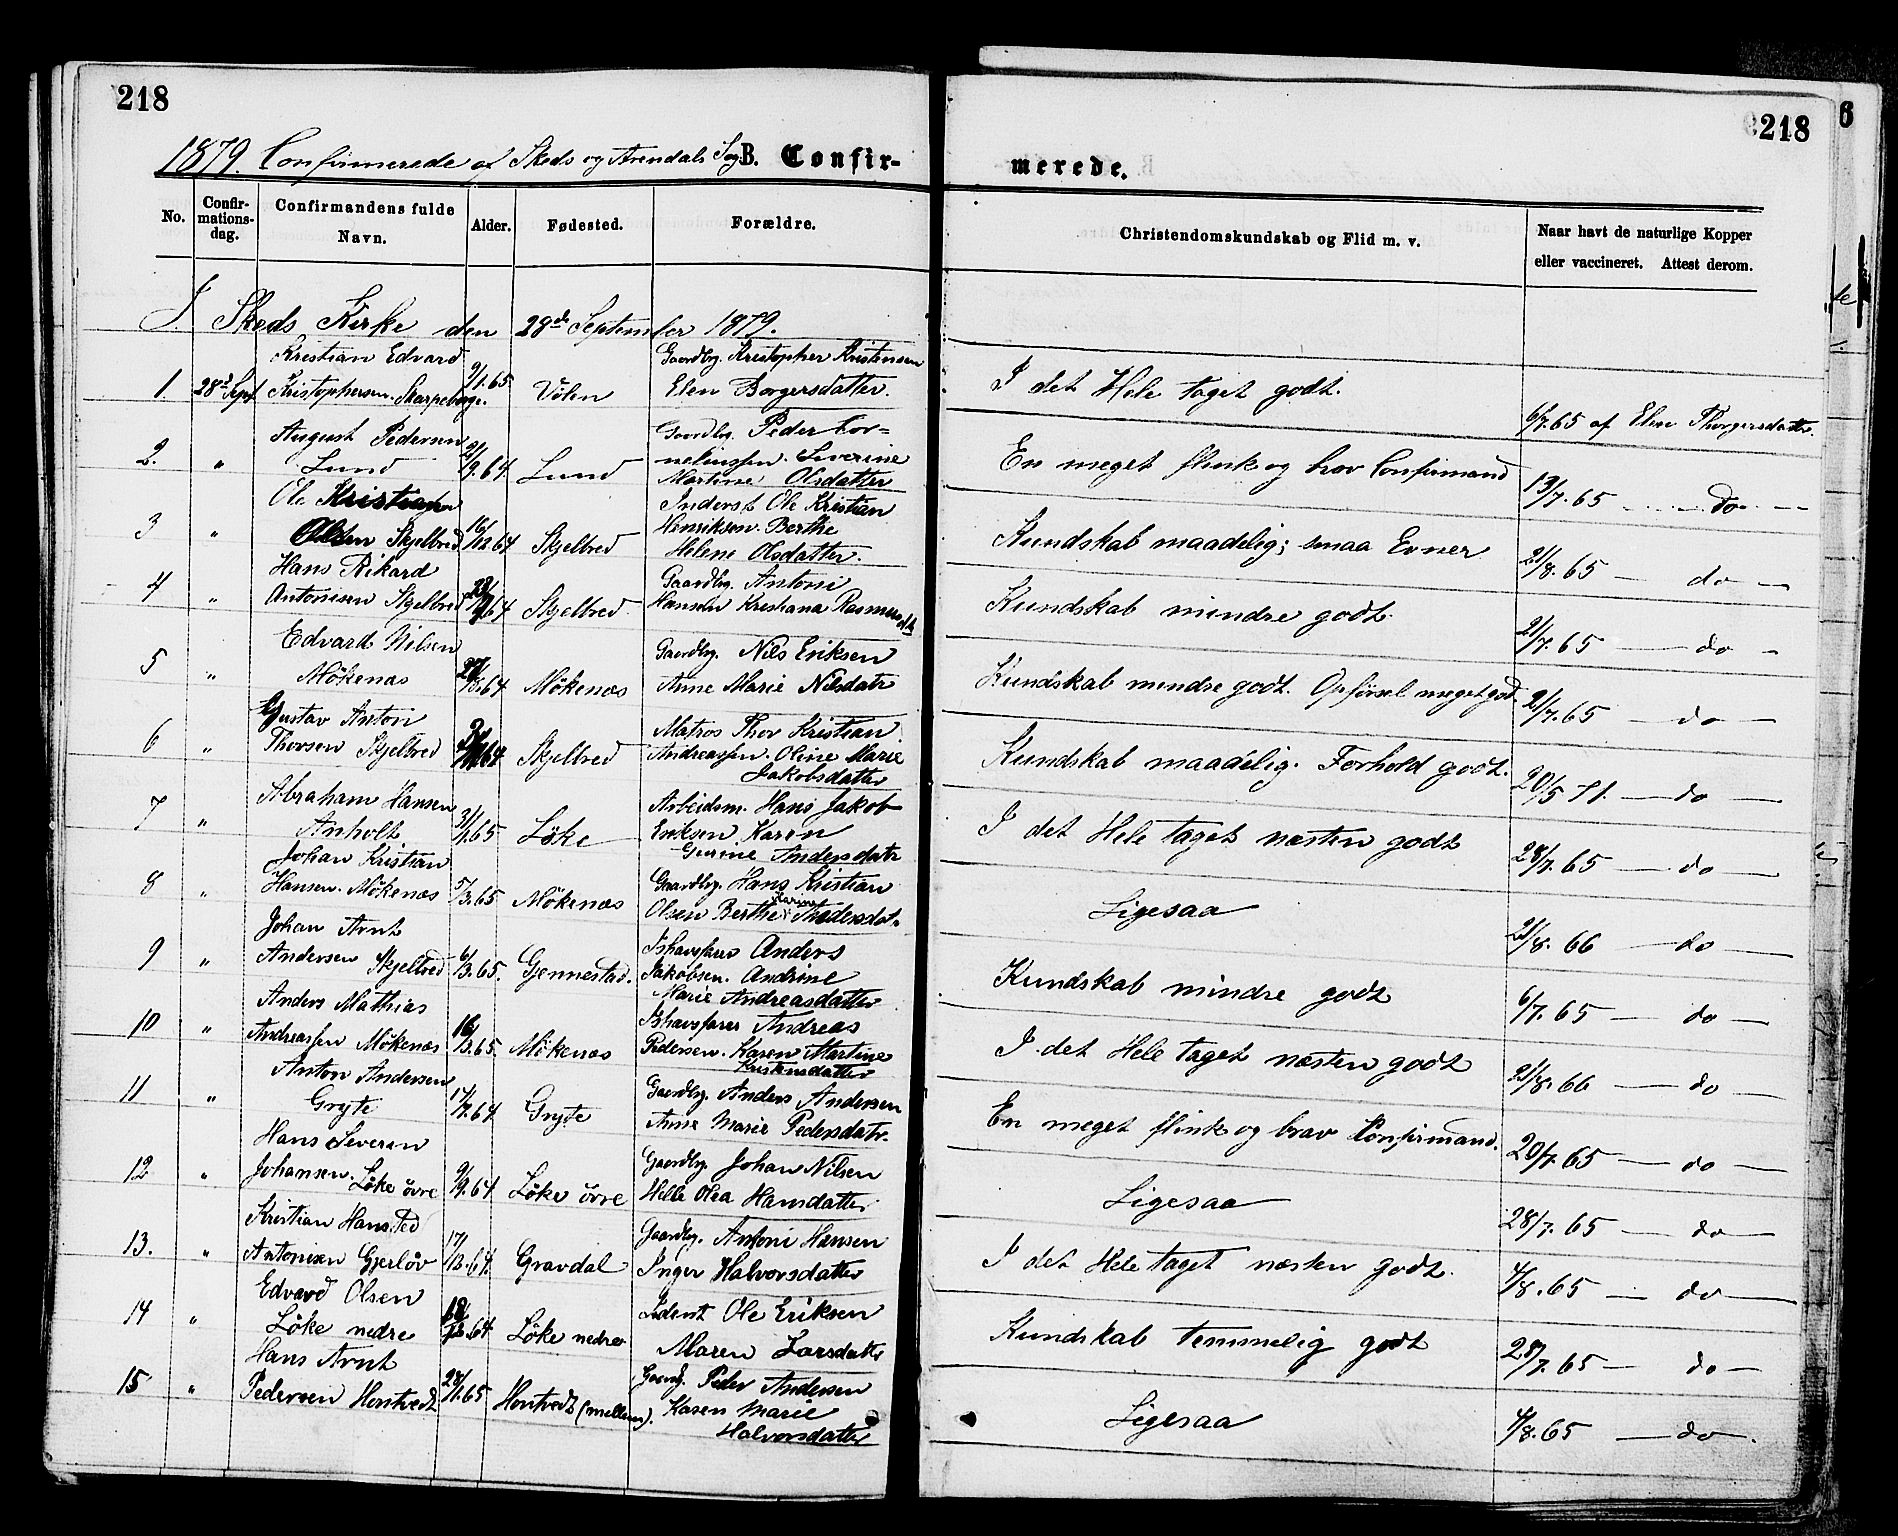 218
218
6
1879. Confirmerede af Skeds og Arendals Sogn B. Confir-
merede.
No. Confir-mations-dag. Confirmandens fulde Navn. Alder. Fødested. Forældre. Christendomskundskab og Flid m. v. Naar havt de naturlige Kopper eller vaccineret. Attest derom.
I Skeds Kirke den 28de September 1879.
Kristian Edvard 9/1.65 Gaardbg. Kristopher Kristensen
1. 28d Sept Kristophersen Skarpeberge. Völen Elen Borgersdatter. I det Hele taget godt. 6/7.65 af Elen Thorgersdatter.
August Pedersen Gaardbg. Peder Cor=
2. " Lund 2/9.64 Lund neliussen. Severine En meget flink og brav Confirmand 13/7.65 — do —
Martine Olsdatter
Ole Kristian Inderst Ole Kristian
3 " Olsen Skjelbred 16/12 64 Skjelbred Henriksen. Berthe Kundskab maadelig; smaa Evner 21/8.65 — do —
Helene Olsdatter.
Hans Rikard Gaardbg. Antoni
4 " Antonisen Skjelbred 64 Skjelbred Hansen Kristiana Rasmusdtr Kundskab mindre godt. 21/7.65 — do —
Edvard Nilsen Gaardbg. Nils Eriksen
5 " Mökenæs 64 Mökenæs Anne Marie Nilsdatr Kundskab mindre godt. Opførsel meget god. 21/7.65 — do —
Gustav Anton Matros Thor Kristian
6 " Thorsen Skjelbred 64 Skjelbred Andreassen. Oline Marie Kundskab maadelig. Forhold godt. 20/5 71. — do —
Jakobsdatter
Abraham Hansen Arbeidsm. Hans Jakob
7 " Anholt 3/1.65 Löke Eriksen Karen I det Hele taget næsten godt 28/7.65 — do —
Gurine Andersdatr
Johan Kristian Gaardbg. Hans Kristian
8 " Hansen. Mökenæs 5/3.65 Mökenæs Olsen Berthe Karine Andersdatr Ligesaa 21/8.66 — do —
Johan Arnt Ishavsfarer Anders
9 " Andersen Skjelbred 6/3.65. Gjennestad. Jakobsen. Andrine Kundskab mindre godt 6/7.65 — do —
Marie Andreasdatter
Anders Mathias Ishavsfarer Andreas
10 " Andreassen Mökenæs 16/3.65. Mökenæs Pedersen. Karen Martine I det Hele taget næsten godt 21/8.66 — do —
Kristensdatter
Anton Andersen Gaardbg. Anders Andersen
11 " Gryte 17/7.64 Gryte Anne Marie Pedersdatr. En meget flink og brav Confirmand. 20/7.65 — do —
Hans Severin Gaardbg. Johan Nilsen
12 " Johansen. Löke övre 9/9.64 Löke övre Helle Olea Hansdatter Ligesaa 28/7.65 — do —
Kristian Hansted Gaardbg. Antoni Hansen
13. " Antonisen Gjerløv 17/12.64. Gravdal Inger Halvorsdatter I det Hele taget næsten godt. 4/8.65 — do —
Edvard Olsen Iderst Ole Eriksen
14 " Löke nedre 64 Löke nedre Maren Larsdatter Kundskab temmelig godt 28/7.65 — do —
Hans Arnt Gaardbg. Peder Andersen
15 " Pedersen Hontvedt. 28/1.65 Hontvedt (mellem). Karen Marie Ligesaa 4/8.65 — do —
Halvorsdatter